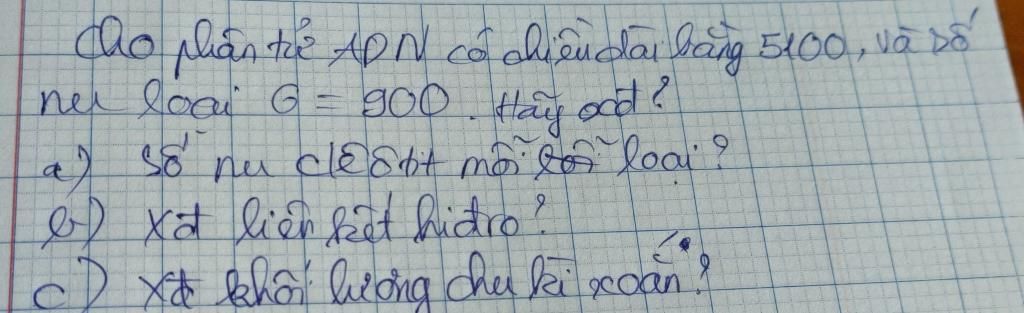 Cho phân tử ADN có chiều dài bằng 5100, và số
nu loại G = 900. Hãy xđ?
a) Số nu clêôtit mỗi loại?
b) xđ liên kết hidro?
c) xđ khối lượng chu kì xoắn?